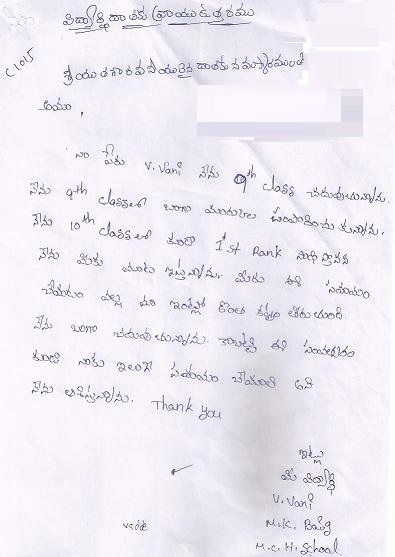 విద్యార్థి దాతకు వ్రాయు ఉత్తరము
C 1015
శ్రీయుత గౌరవనీయులైన దాతకు నమస్కారములతో
అయ్యా,
నా పేరు V. Vani నేను 9th class చదువుచున్నాను.
నేను 9th classలో బాగా మార్కులు సంపాదించుకున్నాను.
నేను 10th classలో కూడా 1st Rank సాధిస్తానని
నేను మీకు మాట ఇస్తున్నాను. మీరు ఈ సహాయం
చేయటం వల్ల మా ఇంట్లో కొంత కష్టం తీరుతుంది
నేను బాగా చదువుచున్నాను. కాబట్టి ఈ సంవత్సరం
కూడా నాకు ఇలాగే సహాయం చేయాలి అని
నేను ఆశిస్తున్నాను. Thank you
ఇట్లు
మీ విద్యార్థి
V. Vani
vadde
M.K.
M.C.H. School